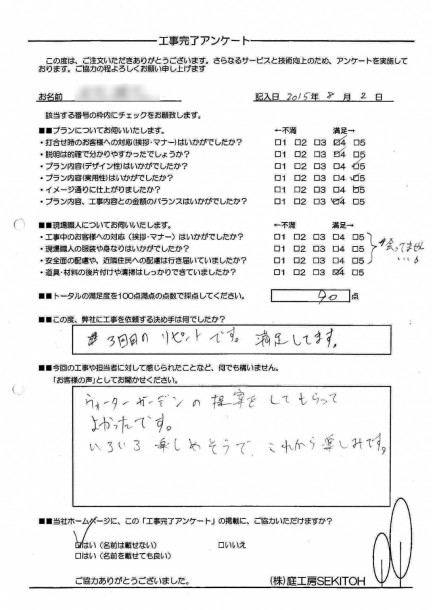 工事完了アンケート
この度は、ご注文いただきありがとうございます。さらなるサービスと技術向上のため、アンケートを実施しております。ご協力の程よろしくお願い申し上げます
お名前
記入日 2015年 8月 2日
該当する番号の枠内にチェックをお願致します。
■■プランについてお伺いいたします。 ←不満 満足→
・打合せ時のお客様への対応(挨拶・マナー)はいかがでしたか? □1 □2 □3 □4 □5
・説明は的確で分かりやすかったでしょうか? □1 □2 □3 □4 □5
・プラン内容(デザイン性)はいかがでしたか? □1 □2 □3 □4 □5
・プラン内容(実用性)はいかがでしたか? □1 □2 □3 □4 □5
・イメージ通りに仕上がりましたか? □1 □2 □3 □4 □5
・プラン内容、工事内容との金額のバランスはいかがでしたか? □1 □2 □3 □4 □5
■■現場職人についてお伺いいたします。 ←不満 満足→
・工事中のお客様への対応(挨拶・マナー)はいかがでしたか? □1 □2 □3 □4 □5
・現場職人の服装や身なりはいかがでしたか? □1 □2 □3 □4 □5
・安全面の配慮や、近隣住民への配慮は行き届いていましたか? □1 □2 □3 □4 □5
・道具・材料の後片付けや清掃はしっかりできていましたか? □1 □2 □3 □4 □5
会ってません
■■トータルの満足度を100点満点の点数で採点してください。 90 点
■■この度、弊社に工事を依頼する決め手は何でしたか?
3回目のリピートです。満足してます。
■■今回の工事や担当者に対して感じられたことなど、何でも構いません。
「お客様の声」としてお聞かせください。
ウォーターガーデンの提案をしてもらって
よかったです。
いろいろ楽しめそうで、これから楽しみです。
■■当社ホームページに、この「工事完了アンケート」の掲載に、ご協力いただけますか?
□はい(名前は載せない) □いいえ
□はい(名前を載せても良い)
ご協力ありがとうございました。
(株)庭工房SEKITOH